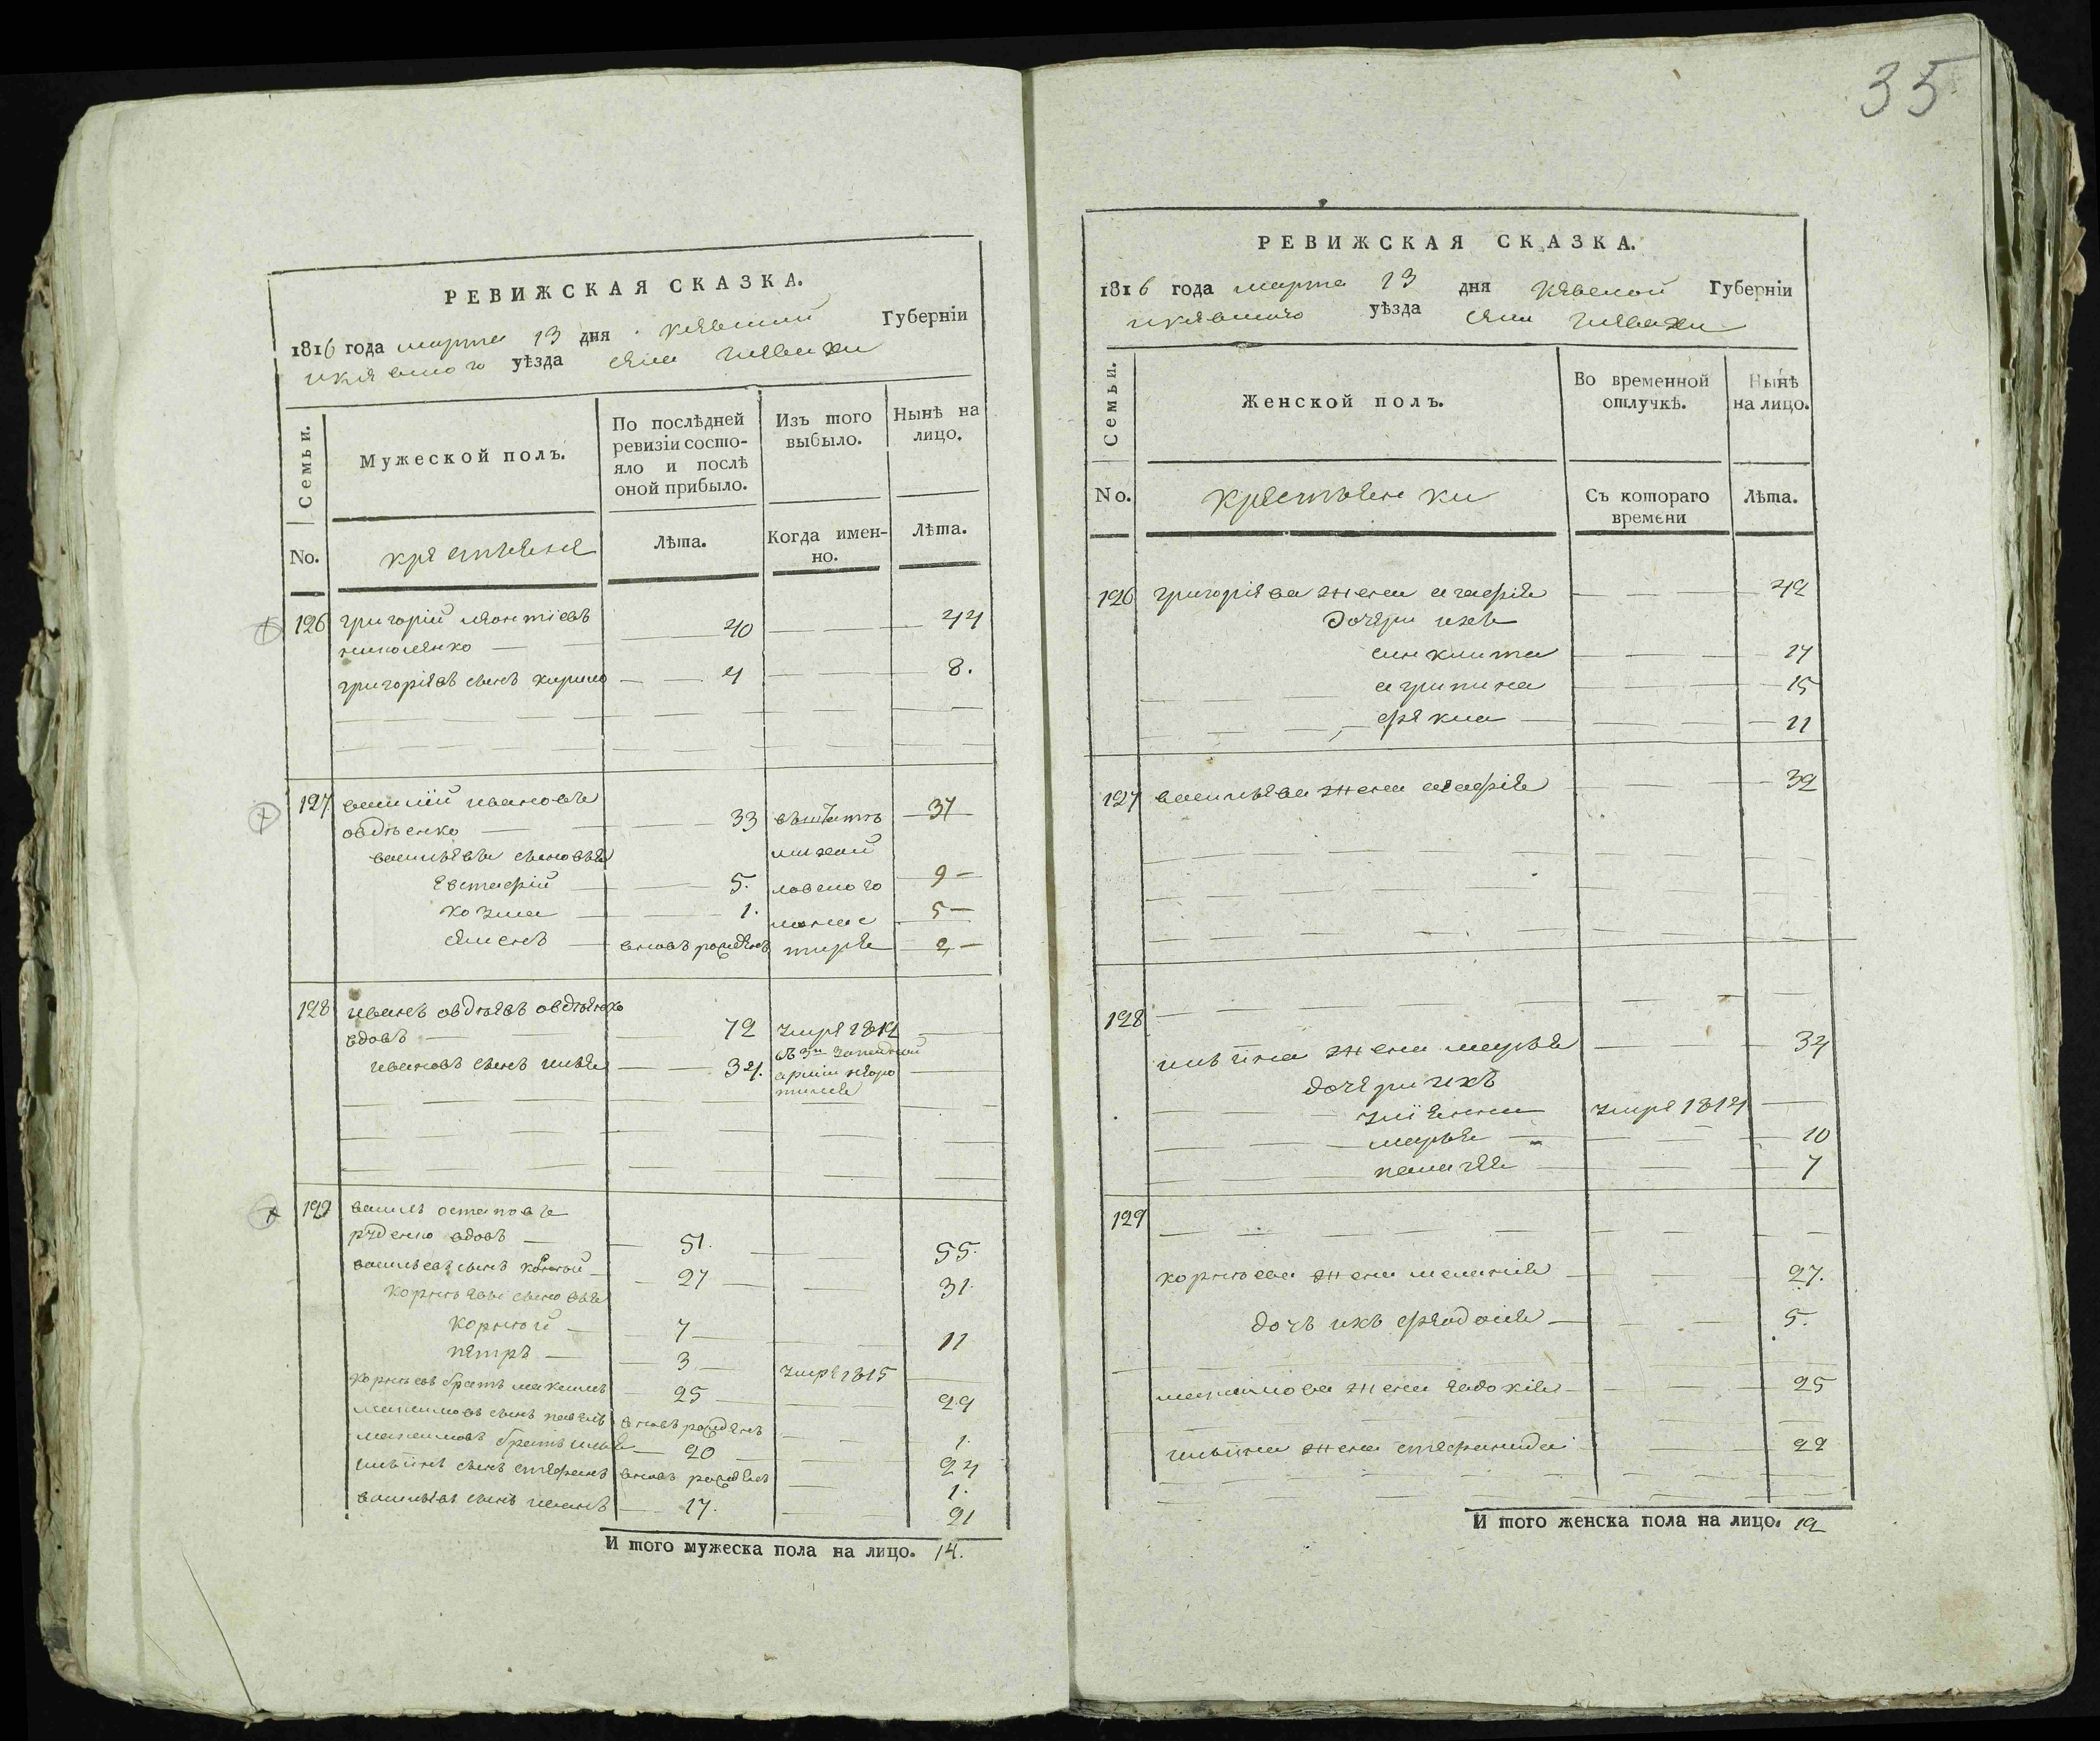 35
РЕВИЖСКАЯ СКАЗКА.
1816 года марта 13 дня киевской Губерніи
икиевского уѣзда села
Семьи.
Мужеской полъ.
По послѣдней ревизіи состояло и послѣ оной прибыло.
Изъ того выбыло.
Нынѣ на лицо.
No.
крестьяне
Лѣта.
Когда именно.
Лѣта.
126 григорій леонтіевъ
40 44
григоріевъ сынъ кирило 4 8.
127 василій ивановъ
овдѣенко 33 37
васильевы сыновья
евстафій 5. 9
козма 1. 5
семенъ вновь рожденъ 2
128 иванъ овдѣевъ овдѣенко
вдовъ 72 умре 1812
ивановъ сынъ илья 34.
129 василь остаповъ
руденко вдовъ 51. 55.
васильевъ сынъ корней 27 31.
корнѣевы сыновья
корней 7 11
петръ 3 умре 1815
корнѣевъ братъ максимъ 25 29
максимовъ сынъ павелъ вновь рожденъ 1.
максимовъ братъ илья 20 24
ильинъ сынъ стефанъ вновь рожденъ 1.
васильевъ сынъ иванъ 17. 21
И того мужеска пола на лицо. 14.
РЕВИЖСКАЯ СКАЗКА.
1816 года марта 13 дня киевской Губерніи
икиевского уѣзда села
Семьи.
Женской полъ.
Во временной отлучкѣ.
Нынѣ на лицо.
No.
крестьянки
Съ котораго времени
Лѣта.
126 григоріева жена агафія 42
дочери ихъ
синклита 17
агрипина 15
фекла 11
127 васильева жена агафія 32
128
ильина жена марья 34
дочери ихъ
уліянна умре 1814
марья 10
пелагея 7
129
корнѣева жена меланія 27.
дочь ихъ феодосія 5.
максимова жена евдокія 25
ильина жена стефанида 22
И того женска пола на лицо. 12